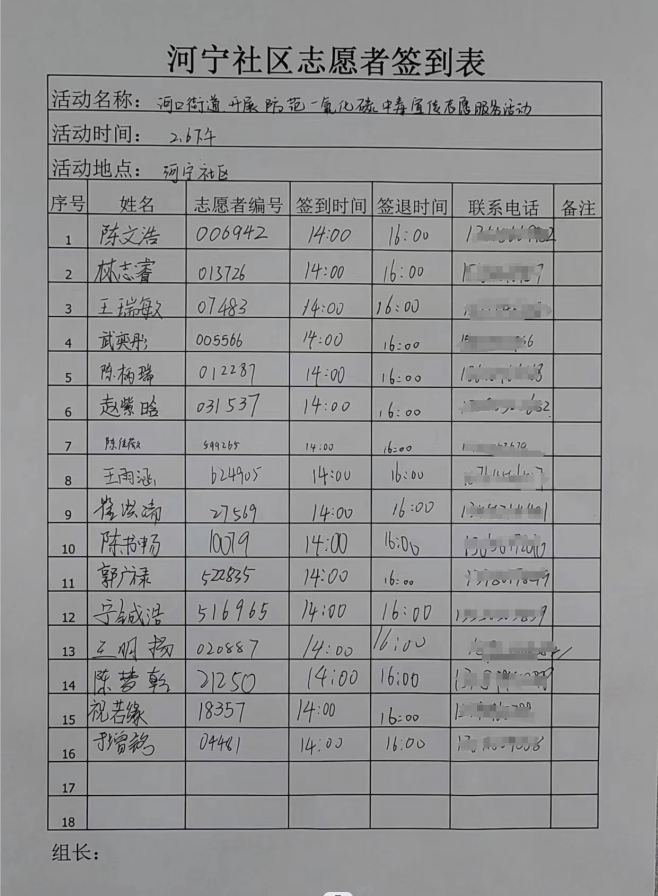 河宁社区志愿者签到表
活动名称: 河口街道开展防范一氧化碳中毒宣传志愿服务活动
活动时间: 2.6下午
活动地点: 河宁社区
序号 姓名 志愿者编号 签到时间 签退时间 联系电话 备注
1 陈文浩 006942 14:00 16:00
2 林志睿 013726 14:00 16:00
3 王瑞敏 07483 14:00 16:00
4 武奕彤 005566 14:00 16:00
5 陈柄瑞 012287 14:00 16:00
6 赵紫晗 031537 14:00 16:00
7 599265 14:00 16:00
8 王雨涵 624905 14:00 16:00
9 27569 14:00 16:00
10 陈书畅 10079 14:00 16:00
11 郭广禄 522835 14:00 16:00
12 宁铖浩 516965 14:00 16:00
13 王明扬 020887 14:00 16:00
14 陈梦乾 21250 14:00 16:00
15 祝若缘 18357 14:00 16:00
16 04481 14:00 16:00
17
18
组长: